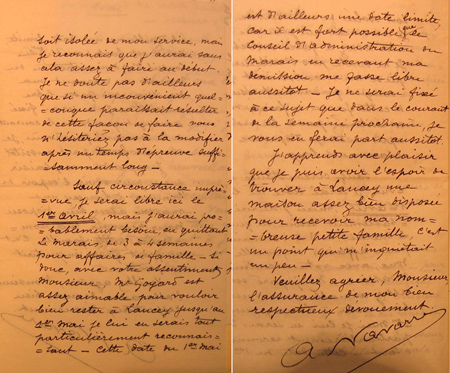 soit isolée de mon service, mais
je reconnais que j'aurai sans
cela assez à faire au début.
Je ne doute pas d'ailleurs
que si un inconvénient quel-
conque paraissait résulter
de cette façon de faire vous
n'hésiteriez pas à la modifier
après un temps d'épreuve suffi-
samment long —
Sauf circonstance impré-
vue je serai libre ici le
1er Avril, mais j'aurai pro-
bablement besoin, en quittant
Le Marais, de 3 à 4 semaines
pour affaires de famille — Si
donc, avec votre assentiment,
Monsieur, Mr Goyard est
assez aimable pour vouloir
bien rester à Lancey jusqu'au
1er Mai je lui en serais tout
particulièrement reconnais-
sant — Cette date du 1er Mai
est d'ailleurs une date limite
car il est fort possible que le
Conseil d'administration du
Marais en recevant ma
démission me fasse libre
aussitôt — Je ne serai fixé
à ce sujet que dans le courant
de la semaine prochaine, je
vous en ferai part aussitôt.
J'apprends avec plaisir
que je puis avoir l'espoir de
trouver à Lancey une
maison assez bien disposée
pour recevoir ma nom-
breuse petite famille c'est
un point qui m'inquiétait
un peu —
Veuillez agréer, Monsieur
l'assurance de mon bien
respectueux dévouement
A Navarre